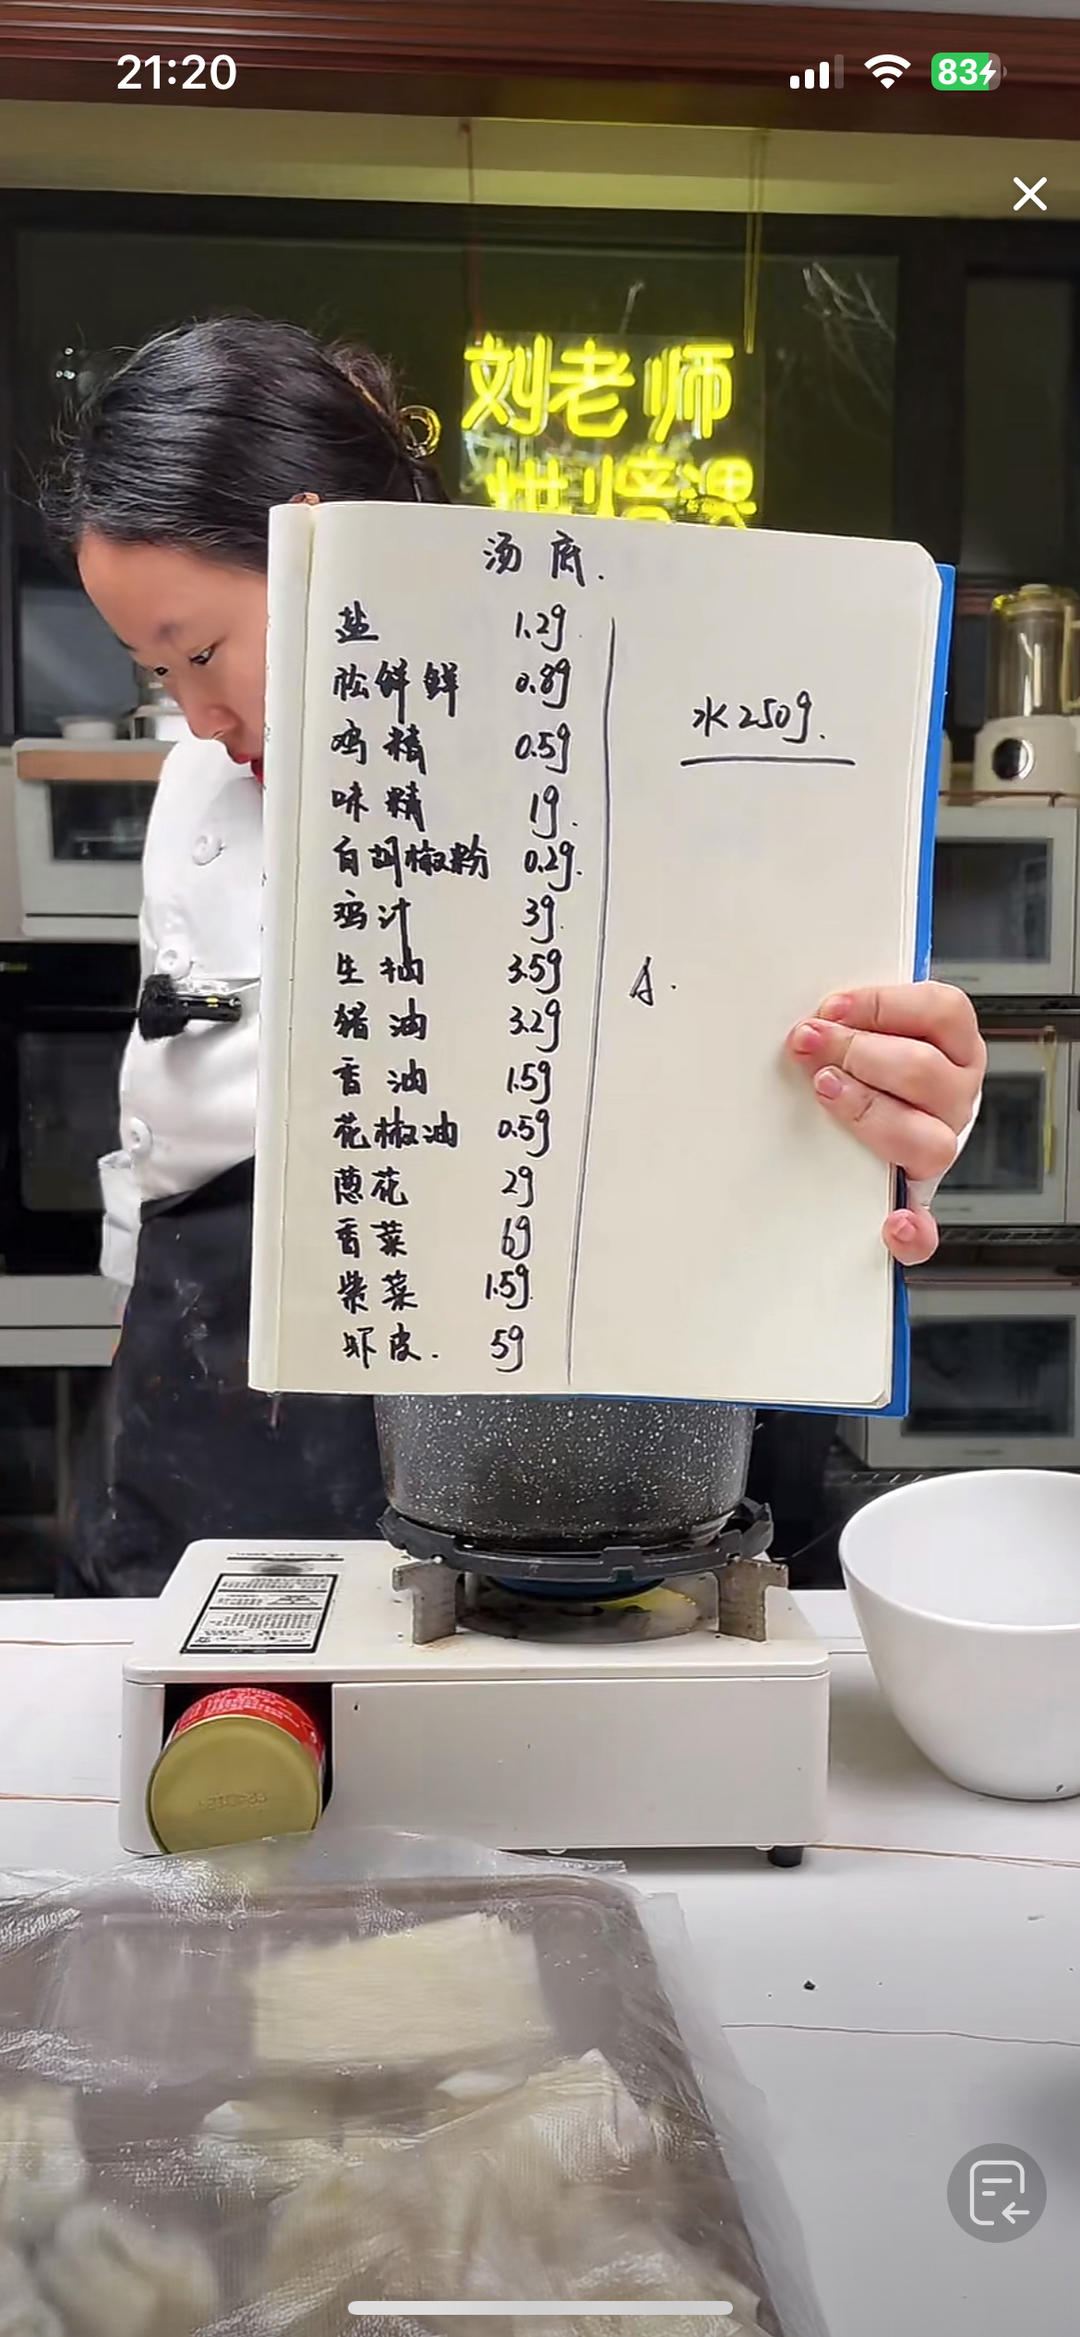 21:20
83
刘老师
烘焙课
汤底.
盐 1.2g.
松鲜鲜 0.8g
鸡精 0.5g
味精 1g.
白胡椒粉 0.2g.
鸡汁 3g.
生抽 3.5g
猪油 3.2g
香油 1.5g
花椒油 0.5g
葱花 2g
香菜 6g
紫菜 1.5g.
虾皮. 5g
水250g.
A.